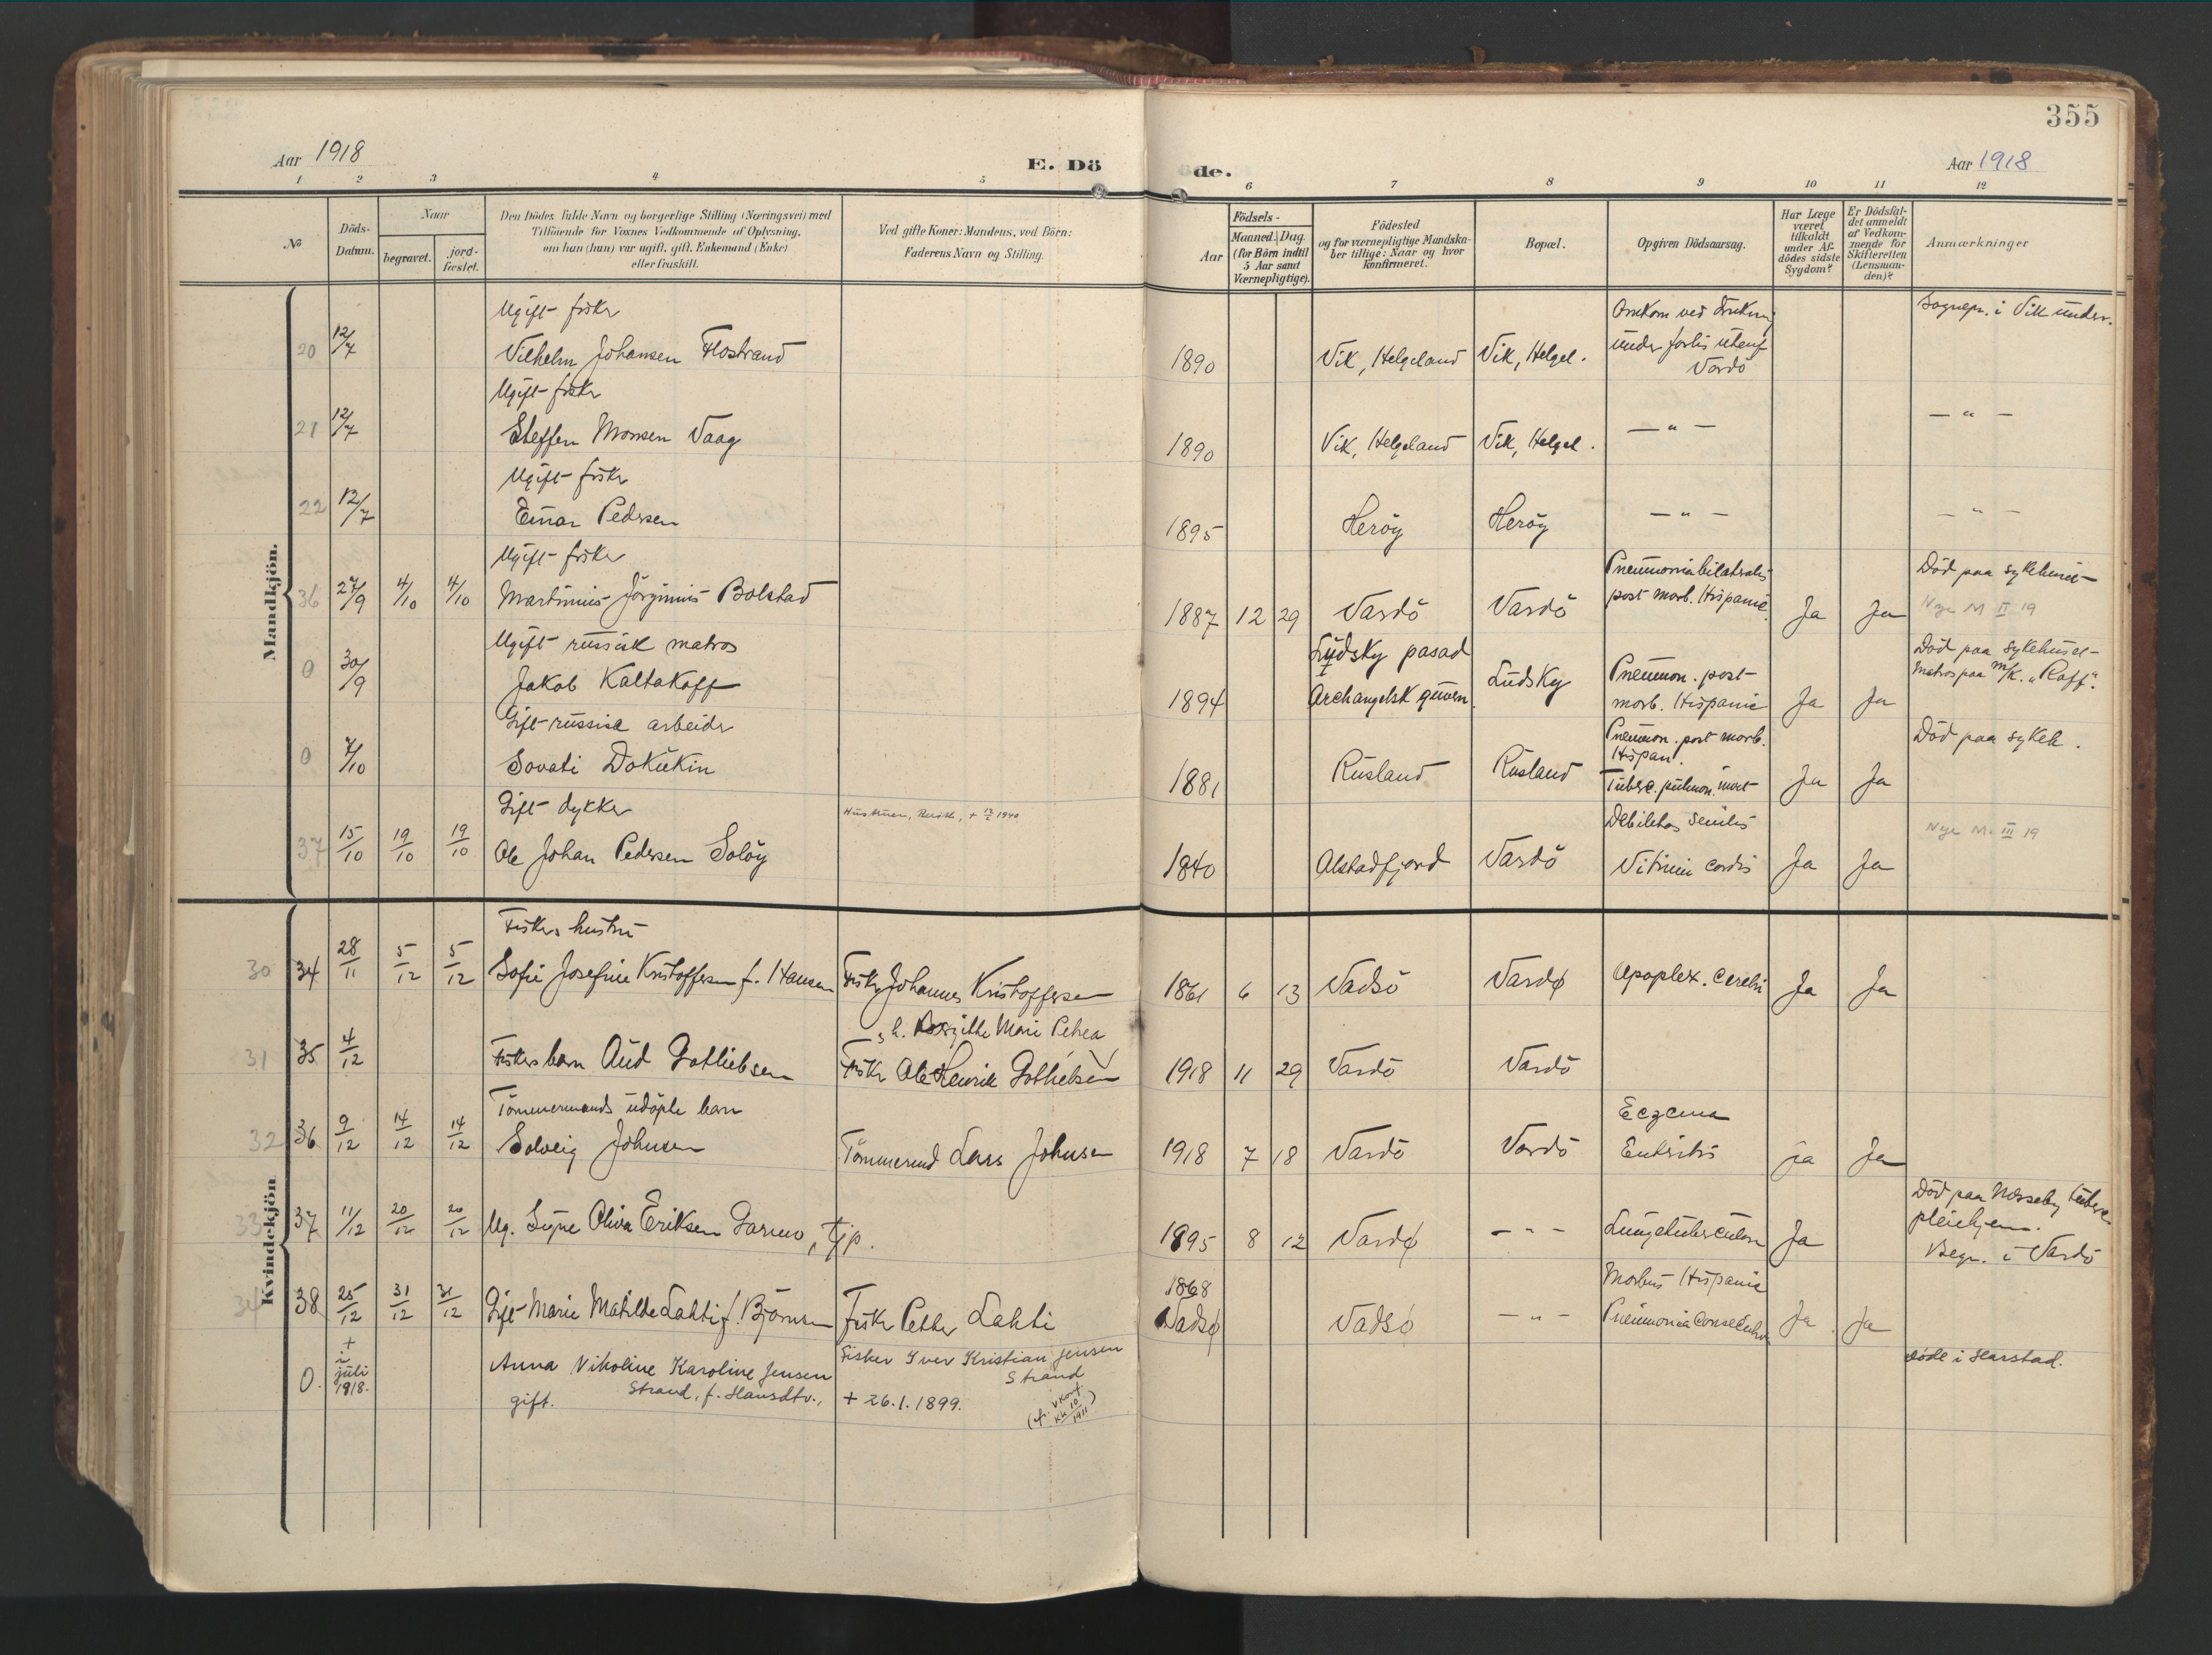 355
Aar 1918
E. Döde.
Aar 1918
1 2 3 4 5 6 7 8 9 10 11 12
No
Döds-Datum.
Naar
begravet.
jord-fæstet.
Den Dödes fulde Navn og borgerlige Stilling (Næringsvei) med
Tilföiende for Voxnes Vedkommende af Oplysning,
om han (hun) var ugift, gift, Enkemand (Enke)
eller fraskilt.
Ved gifte Koner: Mandens, ved Börn:
Faderens Navn og Stilling.
Aar
Födsels-
Maaned. Dag.
(for Börn indtil
5 Aar samt
Værnepligtige).
Födested
og for værnepligtige Mandska-
ber tillige: Naar og hvor
konfirmeret.
Bopæl.
Opgiven Dödsaarsag.
Har Læge
været
tilkaldt
under Af-
dödes sidste
Sygdom?
Er Dödsfal-
det anmeldt
af Vedkom-
mende for
Skifteretten
(Lensman-
den)?
Anmærkninger
Mandkjön.
Ugift fisker
20 12/7 Vilhelm Johansen Flostrand 1890 Vik, Helgeland Vik, Helgel.
Omkom ved
under forlis utenf
Vardö
Sognepr. i Vik underr.
Ugift fisker
21 12/7 Steffen Monsen Vaag 1890 Vik, Helgeland Vik, Helgel. — " — — " —
Ugift fisker
22 12/7 Einar Pedersen 1895 Heröy Heröy — " — — " —
Ugift fisker
36 27/9 4/10 4/10 Martinius Jörginius Bolstad 1887 12 29 Vardö Vardö
Pneumonia bilateralis
post morb. Hispanic. Ja Ja
Död paa sykehuset
Nye M II 19
Ugift russisk matros
0 30/9 Jakob Kaltakoff 1894
Ludsky pasad
Archangelsk guvern. Ludsky
Pneumon. post
morb. Hispanic Ja Ja
Död paa sykehuset
Matros paa m/k. "Raff".
Gift russisk arbeider
0 7/10 Sovati Dokukin 1881 Rusland Rusland
Pneumon. post morb.
Hispan.
Tuberc. pulmon. Ja Ja
Död paa sykeh.
Gift dykker
37 15/10 19/10 19/10 Ole Johan Pedersen Solöy
Hustruen, + 1940
1840 Alstadfjord Vardö
Debilitas senilis
Vitium cordis Ja Ja
Nye M. III 19
Kvindekjön
Fiskers hustru
30 34 28/11 5/12 5/12 Sofie Josefine Kristoffersen f. Hansen Fisker Johannes Kristoffersen 1861 6 13 Vadsö Vardø Apoplex. cerebri Ja Ja
31 35 4/12 Fiskers barn Aud Gottliebsen
Fisker Ole Henrik Gottliebsen
h. Mari Petrea
1918 11 29 Vardö Vardö
Tömmermands udöpte barn
32 36 9/12 14/12 14/12 Solveig Johnsen Tömmermd Lars Johnsen 1918 7 18 Vardö Vardö
Eczema
Enteritis ja Ja
33 37 11/12 20/12 20/12 Ug. Signe Oliva Eriksen Garmo, tjp. 1895 8 12 Vardø — " — Lungetuberculose Ja
Död paa Nesseby tuberc.
pleiehjem.
Begr. i Vardö
34 38 25/12 31/12 31/12 Gift Marie Matilde Lahti f. Björnsen Fisker Petter Lahti
1868
Vadsø Vadsø — " —
Morbus Hispanic
Pneumonia Ja Ja
0. + i juli 1918.
Anna Nikoline Karoline Jensen
Strand, f. Hansdtr.,
gift.
Fisker Iver Kristian Jensen
Strand
+ 26.1.1899.
Døde i Harstad.